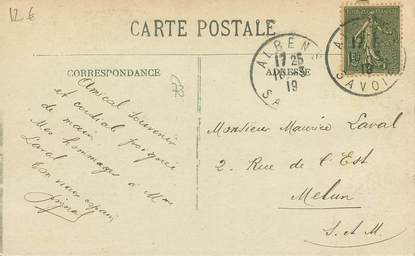 12 €
CARTE POSTALE
CORRESPONDANCE
ADRESSE
73
ALBEN
17 25
19
SAVOI
Amical Souvenir
et cordial
de main.
Mes hommages à Mme
Laval
Ton vieux copain
Monsieur Maurice Laval
2. Rue de l'Est
Melun
S.-et-M.